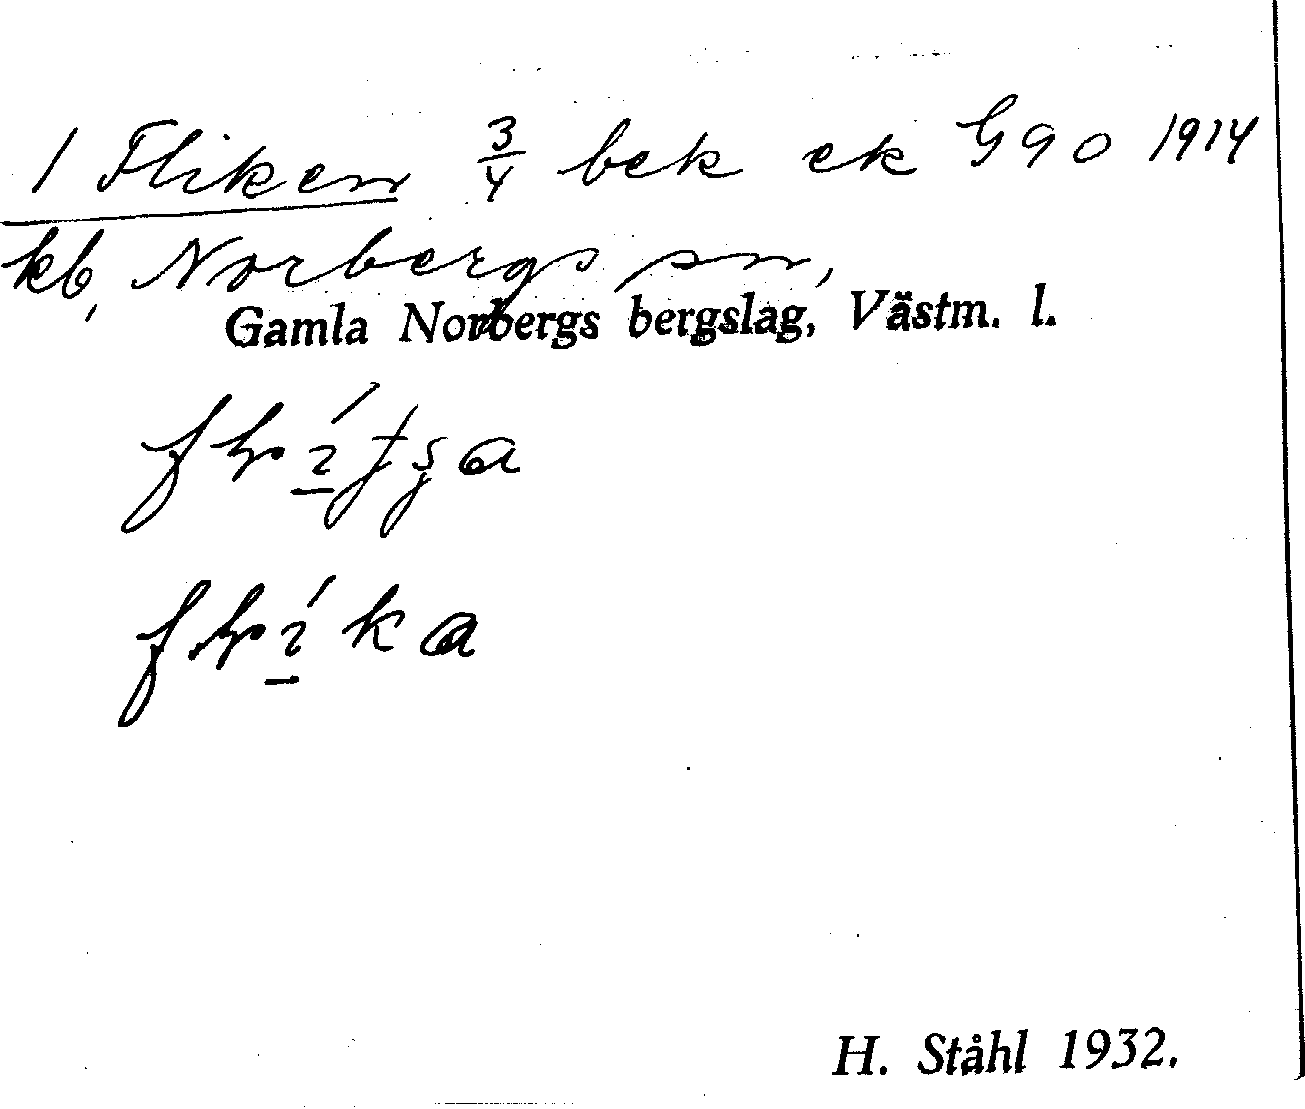 1 Fliken 3/4 bek ek G 90 1914
kb, Norbergs sn,
Gamla Norbergs bergslag, Västm. l.
H. Ståhl 1932.